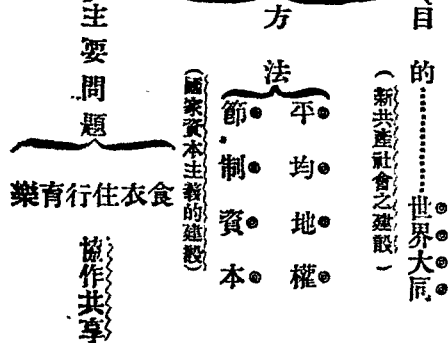 目的⋯⋯⋯世界大同
(新共產社會之建設)
方法
平均地權
節制資本
(國家資本主義的建設)
主要問題
食衣住行育樂
協作共享